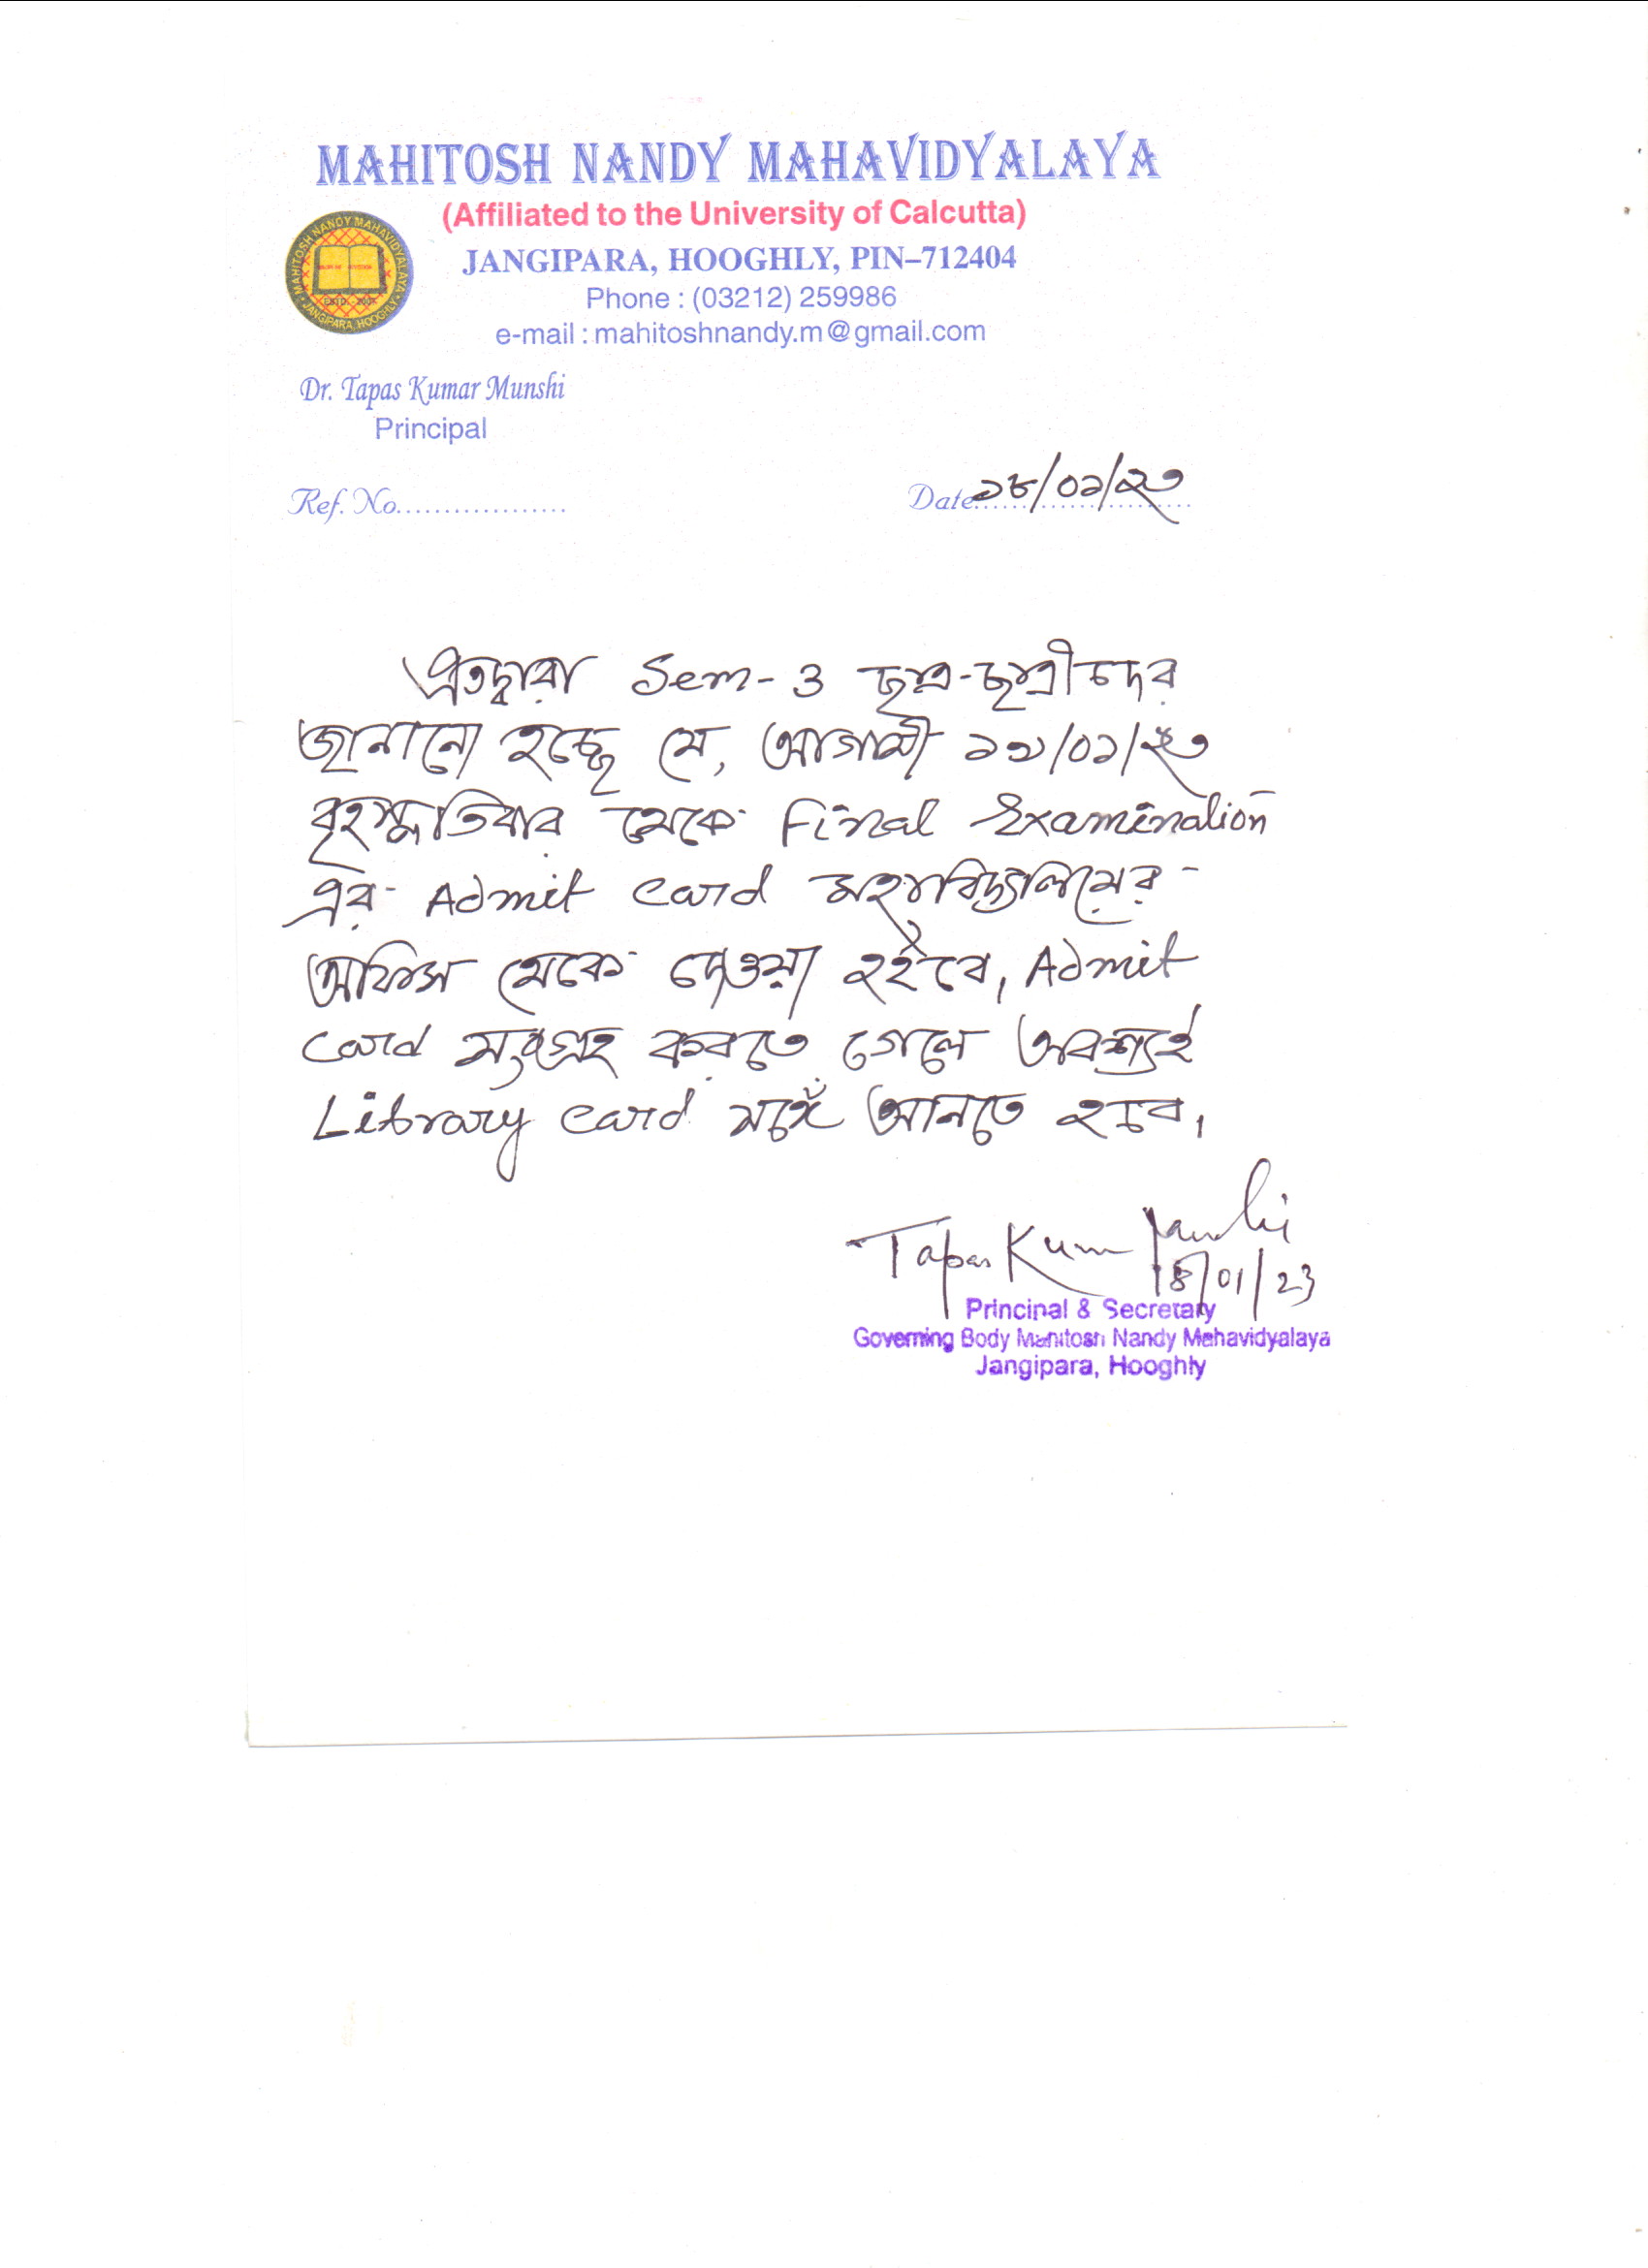 MAHITOSH NANDY MAHAVIDYALAYA
(Affiliated to the University of Calcutta)
JANGIPARA, HOOGHLY, PIN–712404
Phone : (03212) 259986
e-mail : mahitoshnandy.m@gmail.com
MAHITOSH NANDY MAHAVIDYALAYA
ESTD.-2007
JANGIPARA, HOOGHLY
Dr. Tapas Kumar Munshi
Principal
Ref. No..................
Date ১৮/০১/২৩
এতদ্বারা Sem-3 ছাত্র-ছাত্রীদের
জানানো হচ্ছে যে, আগামী ১৯/০১/২৩
বৃহস্পতিবার থেকে Final Examination
এর Admit Card মহাবিদ্যালয়ের
অফিস থেকে দেওয়া হইবে। Admit
Card সংগ্রহ করতে গেলে অবশ্যই
Library Card সঙ্গে আনতে হবে।
Tapas Kumar Munshi
18/01/23
Principal & Secretary
Governing Body Mahitosh Nandy Mahavidyalaya
Jangipara, Hooghly